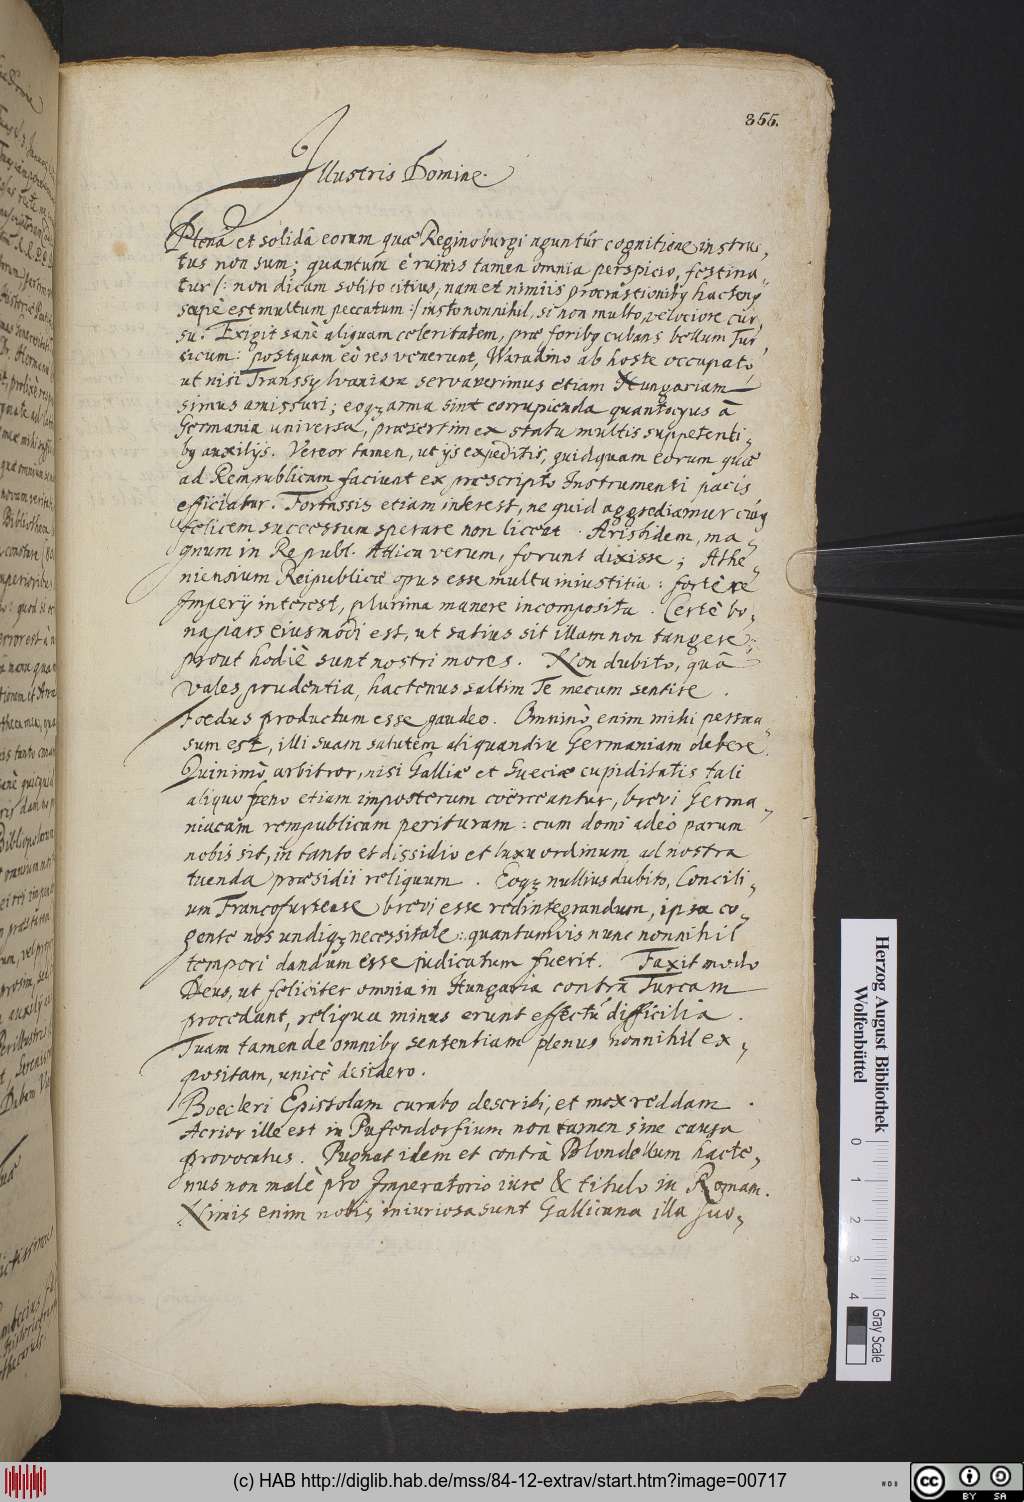 355.
Illustris Domine.
Plenâ et solidâ eorum quæ Reginoburgi aguntúr cognitione instruc,
tus non sum; quantum è rumis tamen omnia perspicio, festina,
tur /: non dicam solito citius, nam et nimiis procrastionibq hactenq
sæpiè est multum peccatum :/ iusto nonnihil, si non multo, velociore cur,
su. Exigit sanè aliquam celeritatem, præ foribq cubans bellum Tur,
cicum: postquam eò res venerunt, Waradino ab hoste occupato,
ut nisi Transsylvaniam servaverimus etiam Hungariam
simus amissuri; eoqz arma sint corripienda quantocyus â
Germania universa, præsertim ex statu multis suppetenti,
bq auxilijs. Vereor tamen, ut ijs expeditis, quidquam eorum quæ
ad Rempublicam faciunt ex præscripto Instrumenti pacis
efficiatur. Fortassis etiam interest, ne quid aggrediamur cuiq
felicem successum sperare non liceat. Aristidem, ma,
gnum in Republ. Attica virum, ferunt dixisse; Athe,
niensium Reipublicæ opus esse multa iniustitia: fortè re
Imperij interest, plurima manere incomposita. Certè bo,
na pars eiusmodi est, ut satius sit illam non tangere;
prout hodiè sunt nostri mores. Non dubito, quâ
vales prudentia, hactenus saltim Te mecum sentire.
Foedus productum esse gaudeo. Omninò enim mihi persua,
sum est, illi suam salutem aliquandiu Germaniam debere.
Quinimò arbitror, nisi Galliæ et Sueciæ cupiditatis tali
aliquo freno etiam imposterum coërceantur, brevi Germa,
niacam rempublicam perituram: cum domi adeò parum
nobis sit, in tanto et dissidio et luxu ordinum, ad nostra
tuenda præsidii reliquum. Eoqz nullius dubito, Concili,
um Francofurtense brevi esse redintegrandum, ipsa co,
gente nos undiqz necessitate: quantumvis nunc nonnihil
tempori dandum esse judicatum fuerit. Faxit modo
Deus, ut feliciter omnia in Hungaria contrà Turcam
procedant, reliqua minus erunt effectú difficilia.
Tuam tamen de omnibq sententiam plenus nonnihil ex,
positam, unicè desidero.
Boecleri Epistolam curabo describi, et mox reddam.
Acrior ille est in Pufendorfium non tamen sine causa
provocatus. Pugnat idem et contrà Blondellum hacte,
nus non malè pro Imperatorio iure & titulo in Romam.
Nimis enim nobis iniuriosa sunt Gallicana illa suo,
Herzog August Bibliothek
Wolfenbüttel
0 1 2 3 4
Gray Scale
(c) HAB http://diglib.hab.de/mss/84-12-extrav/start.htm?image=00717
cc BY SA